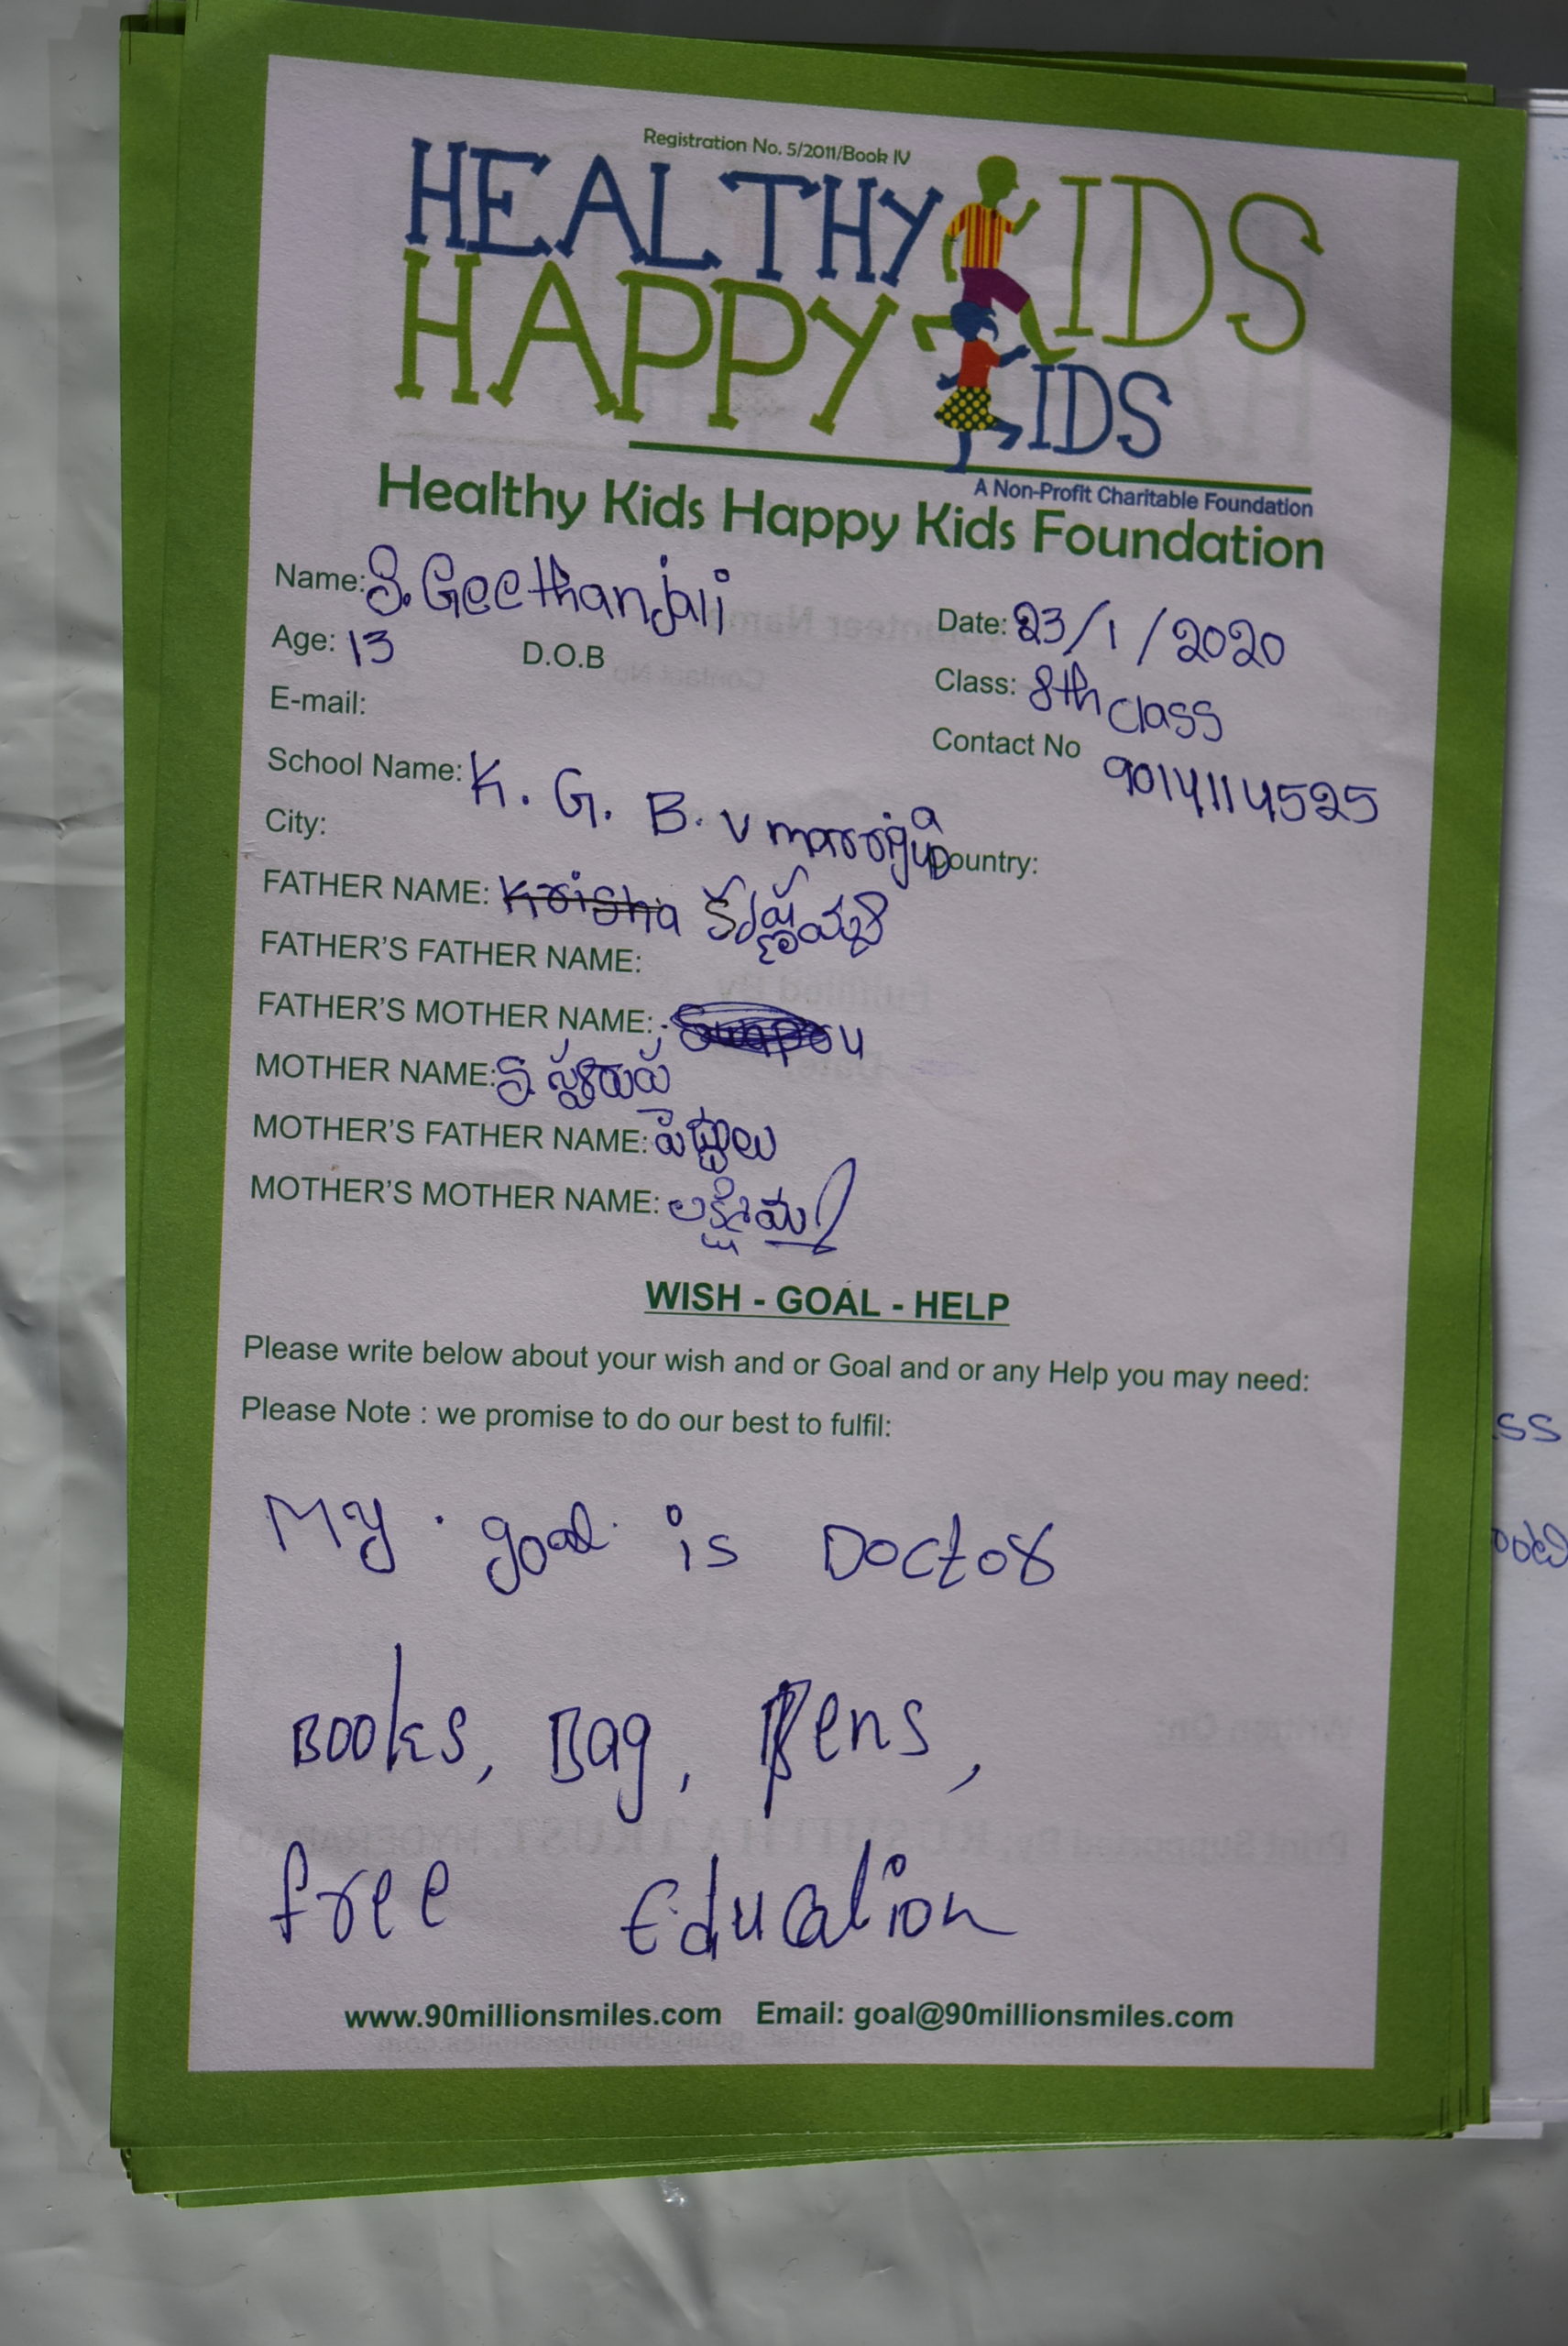 Registration No. 5/2011/Book IV
HEALTHY KIDS
HAPPY KIDS
A Non-Profit Charitable Foundation
Healthy Kids Happy Kids Foundation
Name: S. Geethanjali
Date: 23/1/2020
Age: 13 D.O.B
Class: 8th class
E-mail:
Contact No 9014114525
School Name: K. G. B. V
City: Country:
FATHER NAME:
FATHER'S FATHER NAME:
FATHER'S MOTHER NAME:
MOTHER NAME: S.
MOTHER'S FATHER NAME:
MOTHER'S MOTHER NAME:
WISH - GOAL - HELP
Please write below about your wish and or Goal and or any Help you may need:
Please Note : we promise to do our best to fulfil:
My goal is Doctor
Books, Bag, Pens,
free Education
www.90millionsmiles.com Email: goal@90millionsmiles.com